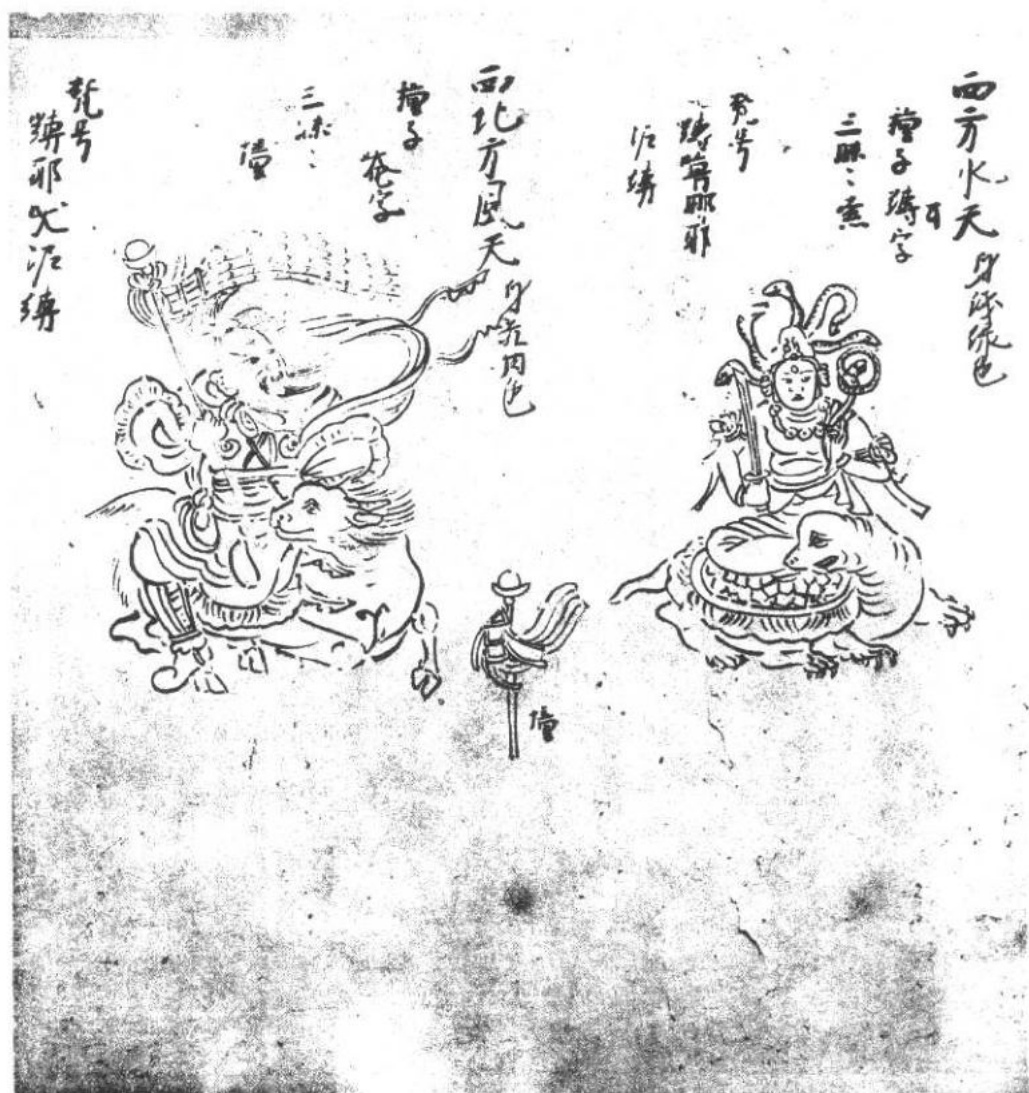 西方水天 身浅緑色
種子 縛字
三昧〻
梵号
縛嚕那耶
泥縛
西北方風天 身
種子
字
三昧〻
幢
梵号
縛耶吠泥縛
幢